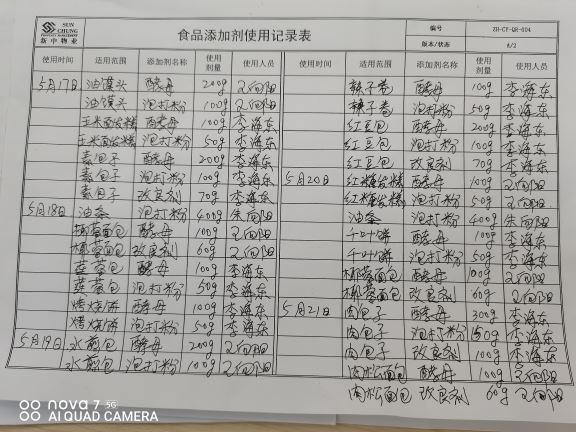 SUN CHUNG
PROPERTY MANAGEMENT
新中物业
食品添加剂使用记录表
编号 ZH-CY-QR-004
版本/状态 A/2
使用时间 适用范围 添加剂名称 使用剂量 使用人员
5月17日 油馒头 酵母 200g 王向阳
油馒头 泡打粉 100g 王向阳
玉米面发糕 酵母 100g 李海东
玉米面发糕 泡打粉 50g 李海东
素包子 酵母 200g 李海东
素包子 泡打粉 100g 李海东
素包子 改良剂 70g 李海东
5月18日 油条 泡打粉 400g 朱向阳
椰蓉面包 酵母 100g 王向阳
椰蓉面包 改良剂 60g 王向阳
莲蓉包 酵母 100g 李海东
莲蓉包 泡打粉 50g 李海东
烤烧饼 酵母 100g 李海东
烤烧饼 泡打粉 50g 李海东
5月19日 水煎包 酵母 200g 王向阳
水煎包 泡打粉 100g 王向阳
使用时间 适用范围 添加剂名称 使用剂量 使用人员
辣子卷 酵母 100g 李海东
辣子卷 泡打粉 50g 李海东
红豆包 酵母 200g 李海东
红豆包 泡打粉 100g 李海东
红豆包 改良剂 70g 李海东
5月20日 红糖发糕 酵母 100g 王向阳
红糖发糕 泡打粉 50g 王向阳
油条 泡打粉 400g 朱向阳
千层饼 酵母 100g 李海东
千层饼 泡打粉 50g 李海东
椰蓉面包 酵母 100g 王向阳
椰蓉面包 改良剂 60g 王向阳
5月21日 肉包子 酵母 300g 李海东
肉包子 泡打粉 150g 李海东
肉包子 改良剂 100g 李海东
肉松面包 酵母 100g 王向阳
肉松面包 改良剂 60g 王向阳
nova 7 5G
AI QUAD CAMERA